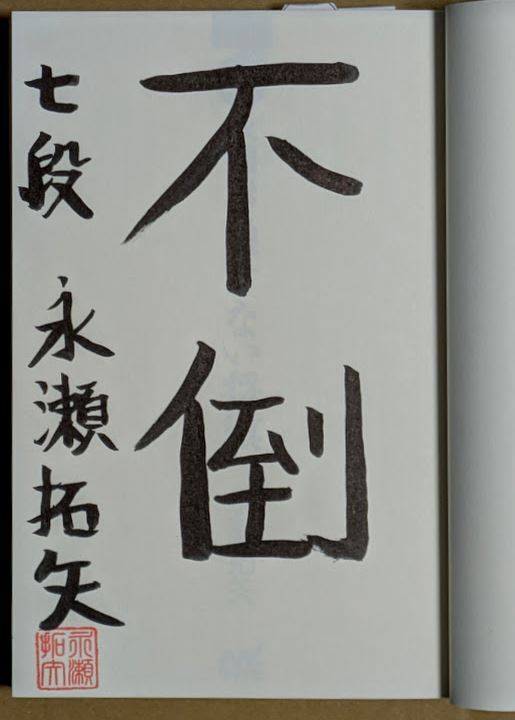 不倒
七段 永瀬拓矢
永瀬
拓矢